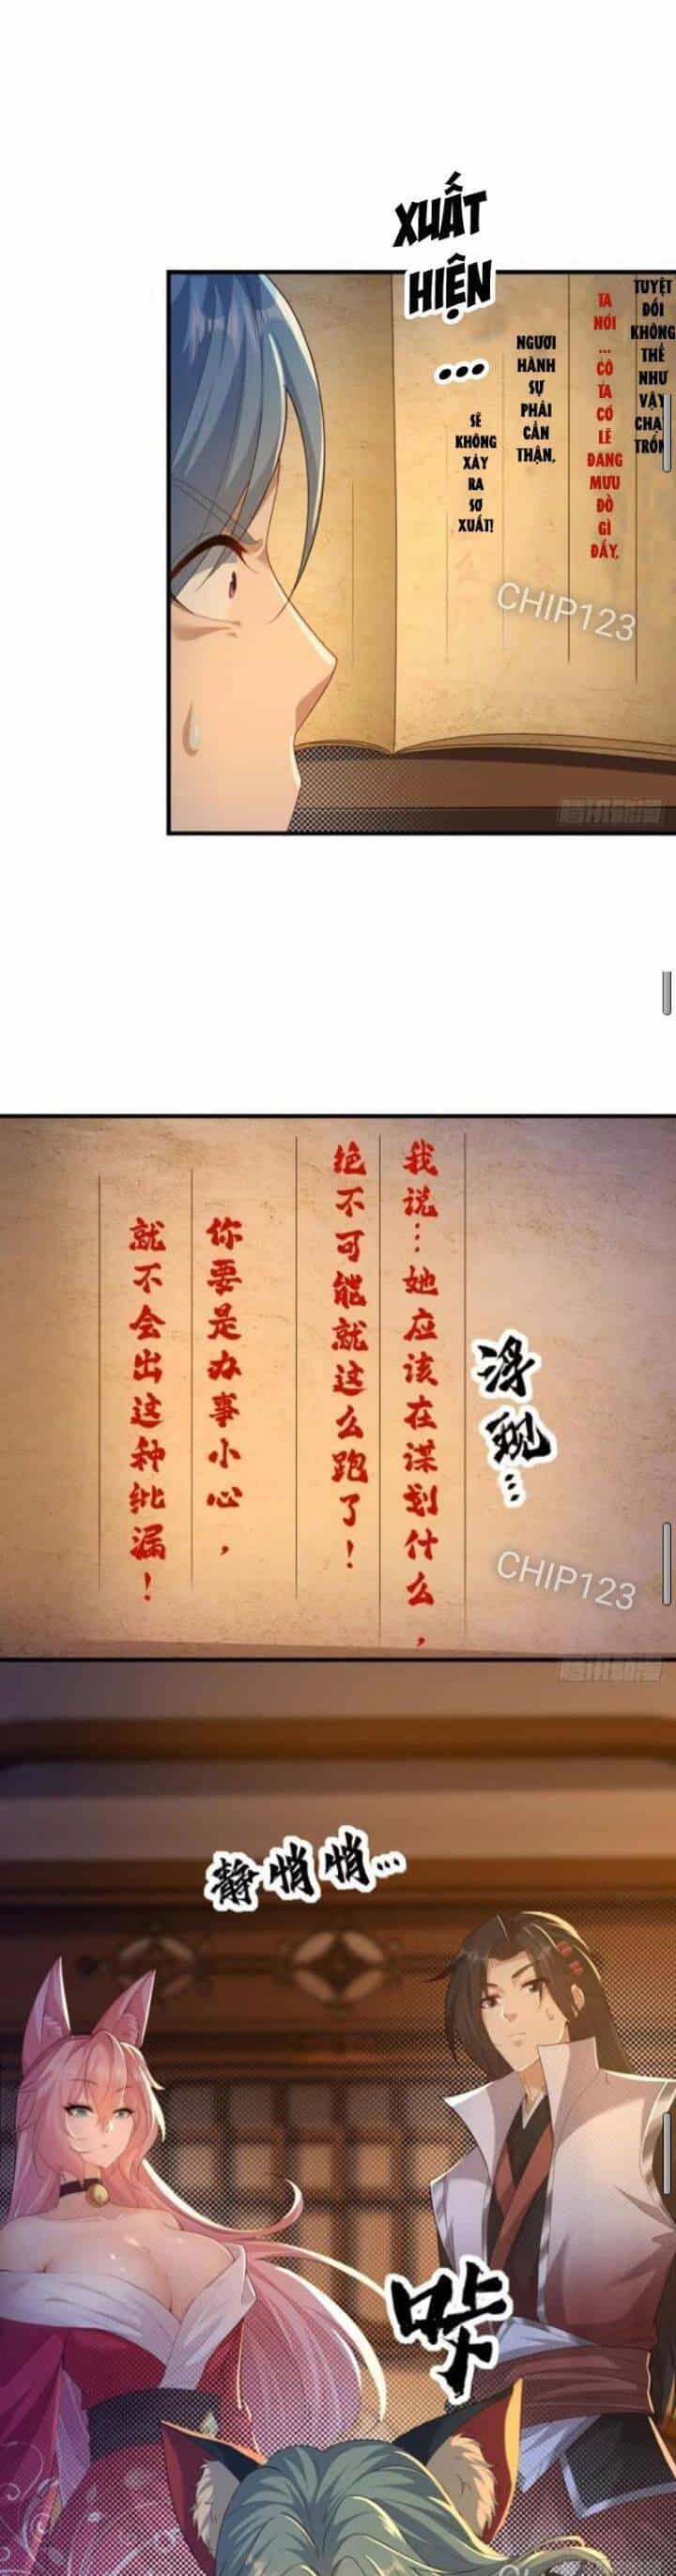 XUẤT
HIỆN
...
TUYỆT
ĐỐI
KHÔNG
THỂ
NHƯ
VẬY
CHẠ
TRỐN
TA
NÓI
...
CÔ
TA
CÓ
LẼ
ĐANG
MƯU
ĐỒ
GÌ
ĐẤY,
NGƯƠI
HÀNH
SỰ
PHẢI
CẨN
THẬN,
SẼ
KHÔNG
XẢY
RA
SƠ
XUẤT!
CHIP123
浮现…
我说…她应该在谋划什么，
绝不可能就这么跑了！
你要是办事小心，
就不会出这种纰漏！
CHIP123
静悄悄…
咔